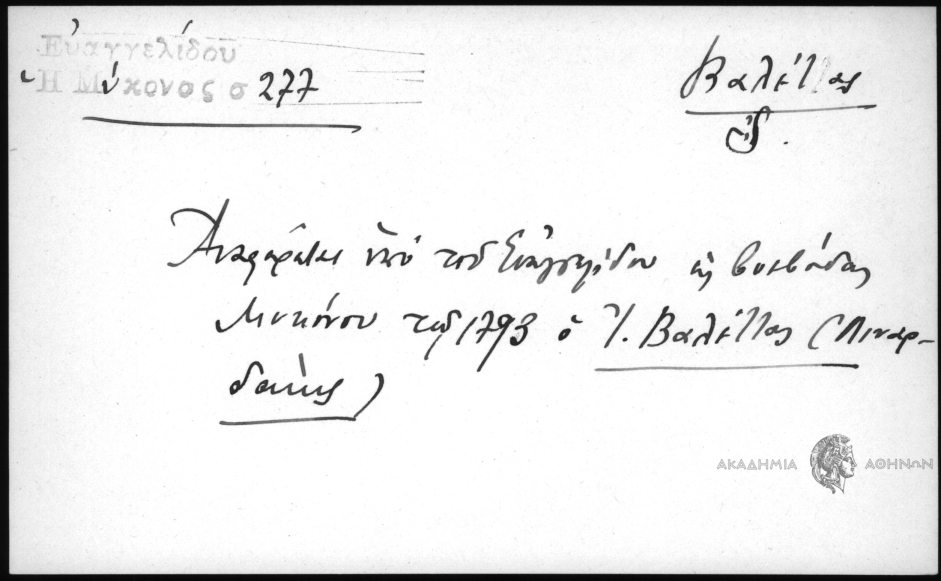 Εὐαγγελίδου
Ἡ Μύκονος σ 277
Βαλέττας
Ἀναφέρεται ὑπό τοῦ Εὐαγγελίδου ὡς βοεβόδας
Μυκόνου τῷ 1793 ὁ Ἰ. Βαλέττας (Πιναρ-
δάκης)
ΑΚΑΔΗΜΙΑ ΑΘΗΝΩΝ